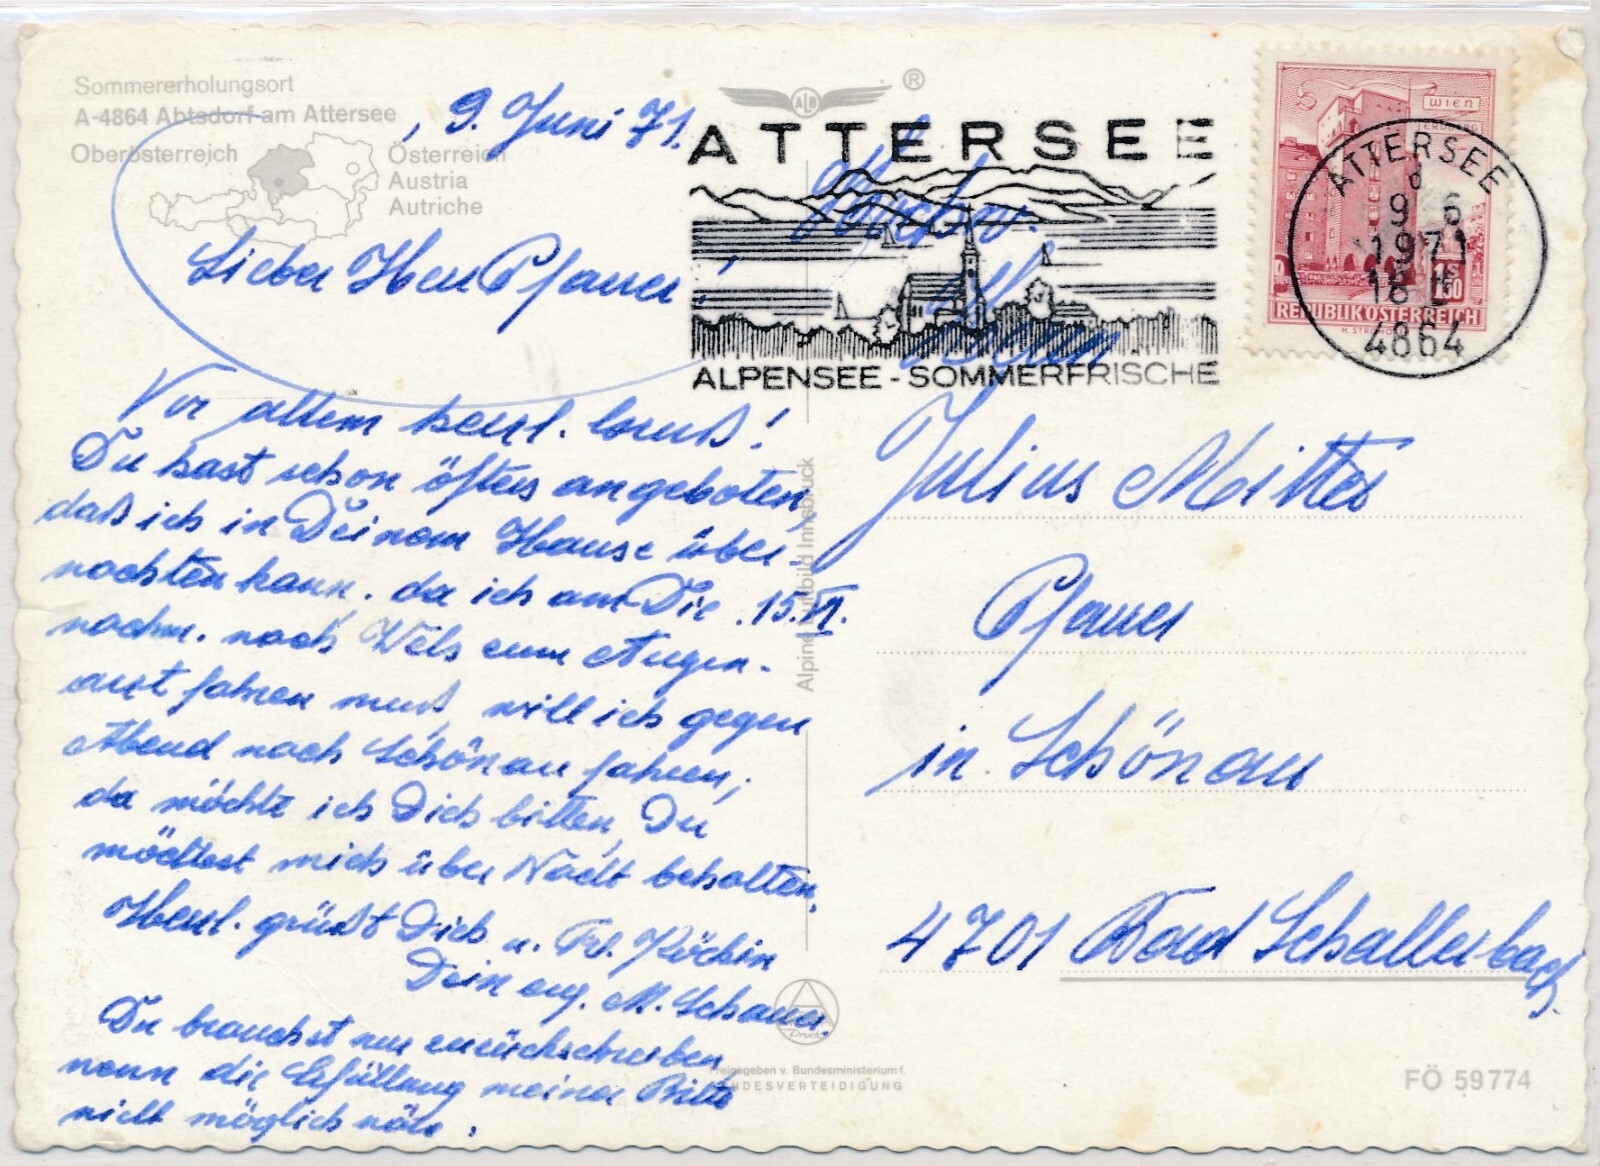 Sommererholungsort
A-4864 Abtsdorf am Attersee
Oberösterreich
Österreich
Austria
Autriche
, 9. Juni 71.
Lieber Herr Pfarrer!
Vor allem herzl. Gruß!
Du hast schon öfters angeboten,
daß ich in Deinem Hause über-
nachten kann. da ich am Die. 15.VI.
nachm. nach Wels zum Augen-
arzt fahren muß, will ich gegen
Abend nach Schönau fahren;
da möchte ich Dich bitten, Du
möchtest mich über Nacht behalten.
Herzl. grüßt Dich u. Frl. Köchin
Dein erg. M. Schauer.
Du brauchst nur zurückschreiben,
wenn die Erfüllung meiner Bitte
nicht möglich wäre.
ALB ®
ATTERSEE
ALPENSEE - SOMMERFRISCHE
WIEN
ERDBERG
S 1.50
REPUBLIK ÖSTERREICH
ATTERSEE
9 6
1971
4864
Hochw.
Herrn
Julius Mitter
Pfarrer
in Schönau
4701 Bad Schallerbach
Alpine Luftbild Innsbruck
Druck
Freigegeben v. Bundesministerium f.
LANDESVERTEIDIGUNG
FÖ 59774